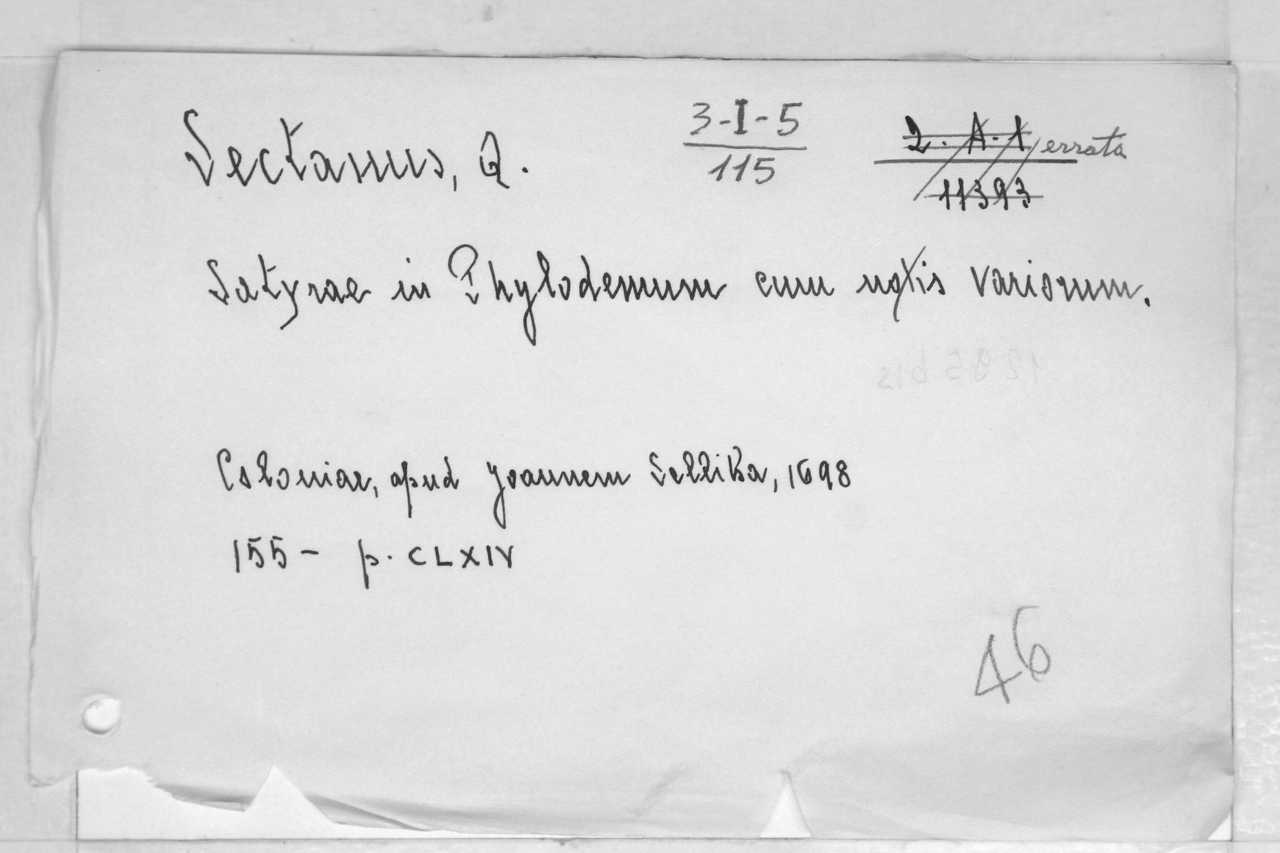 Sectanus, Q.
3-I-5
115
2. A. 1 errata
11393
Satyrae in Phylodemum cum notis variorum.
1285 bis
Coloniae, apud Joannem Sellika, 1698
155 - p. CLXIV
46